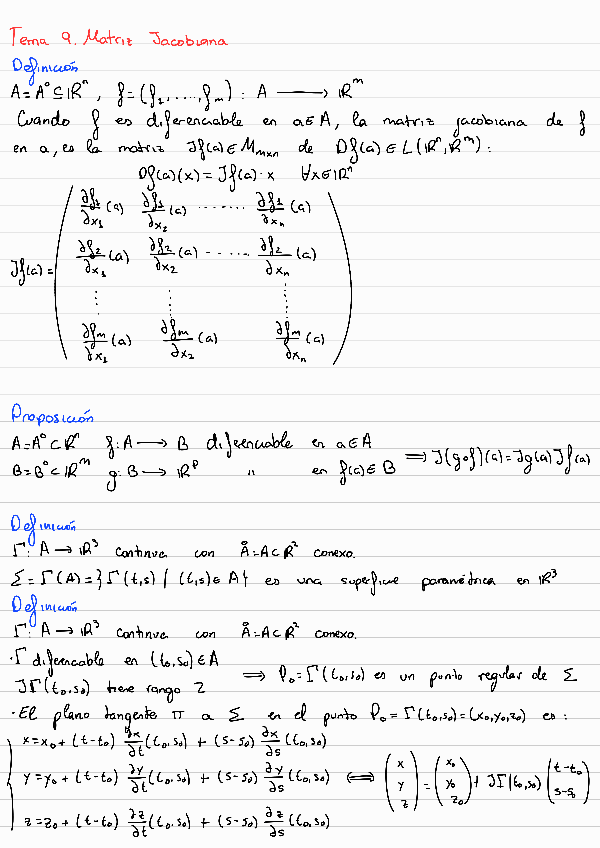 Tema 9. Matriz Jacobiana
Definición
A=A° ⊆ ℝⁿ, f=(f₁,...,fₘ): A ⟶ ℝᵐ
Cuando f es diferenciable en a∈A, la matriz jacobiana de f
en a, es la matriz Jf(a)∈Mₘₓₙ de Df(a)∈L(ℝⁿ,ℝᵐ):
Df(a)(x)=Jf(a)·x ∀x∈ℝⁿ
∂f₁/∂x₁(a) ∂f₁/∂x₂(a) ........ ∂f₁/∂xₙ(a)
∂f₂/∂x₁(a) ∂f₂/∂x₂(a) ........ ∂f₂/∂xₙ(a)
Jf(a)=
⋮ ⋮ ⋮
∂fₘ/∂x₁(a) ∂fₘ/∂x₂(a) ∂fₘ/∂xₙ(a)
Proposición
A=A°⊂ℝⁿ f:A ⟶ B diferenciable en a∈A
B=B°⊂ℝᵐ g:B ⟶ ℝᵖ " en f(a)∈B ⟹ J(g∘f)(a)=Jg(a)Jf(a)
Definición
Γ: A → ℝ³ continua con Å=A⊂ℝ² conexo.
Σ=Γ(A)={Γ(t,s) / (t,s)∈A} es una superficie paramétrica en ℝ³
Definición
Γ: A → ℝ³ continua con Å=A⊂ℝ² conexo.
·Γ diferencable en (t₀,s₀)∈A
JΓ(t₀,s₀) tiene rango 2 ⟹ P₀=Γ(t₀,s₀) es un punto regular de Σ
·El plano tangente π a Σ en el punto P₀=Γ(t₀,s₀)=(x₀,y₀,z₀) es:
x=x₀+(t-t₀) ∂x/∂t(t₀,s₀) + (s-s₀) ∂x/∂s(t₀,s₀)
y=y₀+(t-t₀) ∂y/∂t(t₀,s₀) + (s-s₀) ∂y/∂s(t₀,s₀) ⟺ (x y z) = (x₀ y₀ z₀) + JΓ(t₀,s₀) (t-t₀ s-s₀)
z=z₀+(t-t₀) ∂z/∂t(t₀,s₀) + (s-s₀) ∂z/∂s(t₀,s₀)